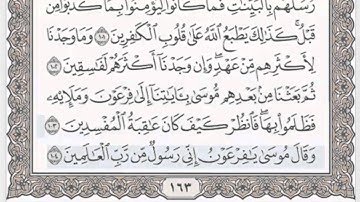 رُسُلُهُم بِٱلْبَيِّنَٰتِ فَمَا كَانُوا۟ لِيُؤْمِنُوا۟ بِمَا كَذَّبُوا۟ مِن
قَبْلُ ۚ كَذَٰلِكَ يَطْبَعُ ٱللَّهُ عَلَىٰ قُلُوبِ ٱلْكَٰفِرِينَ ١٠١ وَمَا وَجَدْنَا
لِأَكْثَرِهِم مِّنْ عَهْدٍ ۖ وَإِن وَجَدْنَآ أَكْثَرَهُمْ لَفَٰسِقِينَ ١٠٢
ثُمَّ بَعَثْنَا مِنۢ بَعْدِهِم مُّوسَىٰ بِـَٔايَٰتِنَآ إِلَىٰ فِرْعَوْنَ وَمَلَإِي۟هِۦ
فَظَلَمُوا۟ بِهَا ۖ فَٱنظُرْ كَيْفَ كَانَ عَٰقِبَةُ ٱلْمُفْسِدِينَ ١٠٣
وَقَالَ مُوسَىٰ يَٰفِرْعَوْنُ إِنِّى رَسُولٌ مِّن رَّبِّ ٱلْعَٰلَمِينَ ١٠٤
١٦٣